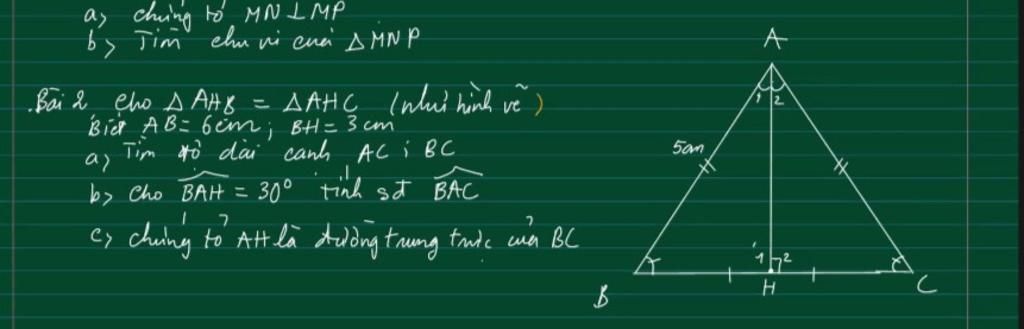 a, chứng tỏ MN ⊥ MP
b, Tìm chu vi của △MNP
Bài 2 cho △AHB = △AHC (như hình vẽ)
Biết AB = 6cm; BH = 3cm
a, Tìm độ dài cạnh AC; BC
b, cho BAH = 30° tính sđ BAC
c, chứng tỏ AH là đường trung trực của BC
A
1 2
5cm
1 2
B H C